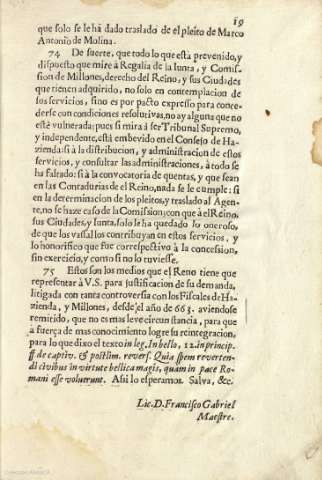 19
que solo se le há dado traslado de el pleito de Marco
Antonio de Molina.
74 De suerte, que todo lo que está prevenido, y
dispuesto que mire à Regalia de la Iunta, y Comis-
sion de Millones, derecho del Reino, y sus Ciudades
que tienen adquirido, no solo en contemplacion de
sus servicios, sino es por pacto expresso para conce-
derse con condiciones resolutivas, no ay alguna que no
esté vulnerada; pues si mira à ser Tribunal Supremo,
y independente, está embevido en el Consejo de Ha-
zienda: si à la distribucion, y administracion de estos
servicios, y consultar las administraciones, à todo se
ha faltado: si à la convocatoria de quentas, y que sean
en las Contadurias de el Reino, nada se le cumple: si
en la determinacion de los pleitos, y traslado al Agen-
te, no se haze caso de la Comission; con que à el Reino,
sus Ciudades, y Iunta, solo le ha quedado lo oneroso,
de que los vassallos contribuyan en estos servicios, y
lo honorifico que fue correspectivo à la concession,
sin exercicio, y como si no lo tuviesse.
75 Estos son los medios que el Reno tiene que
representar à V.S. para justificacion de su demanda,
litigada con tanta controversia con los Fiscales de Ha-
zienda, y Millones, desde el año de 663. aviendose
remitido, que no es mas leve circunstancia, para que
à fuerça de mas conocimiento logre su reintegracion,
para lo que dixo el texto in leg. In bello, 12. in princip.
ff. de captiv. & postlim. revers. Quia spem reverten-
di civibus in virtute bellica magis, quam in pace Ro-
mani esse voluerunt. Asi lo esperamos. Salva, &c.
Lic. D. Francisco Gabriel
Maestre.